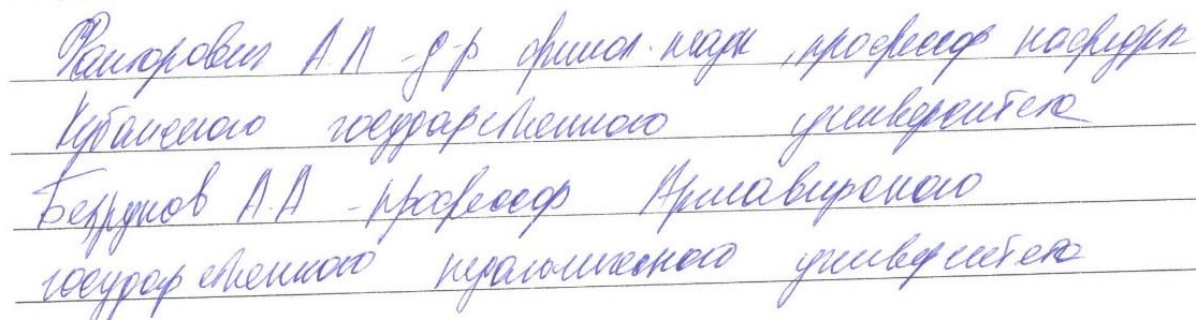 А.Л - д-р филол. наук, профессор кафедры
Кубанского государственного университета
А.А - профессор Армавирского
государственного педагогического университета